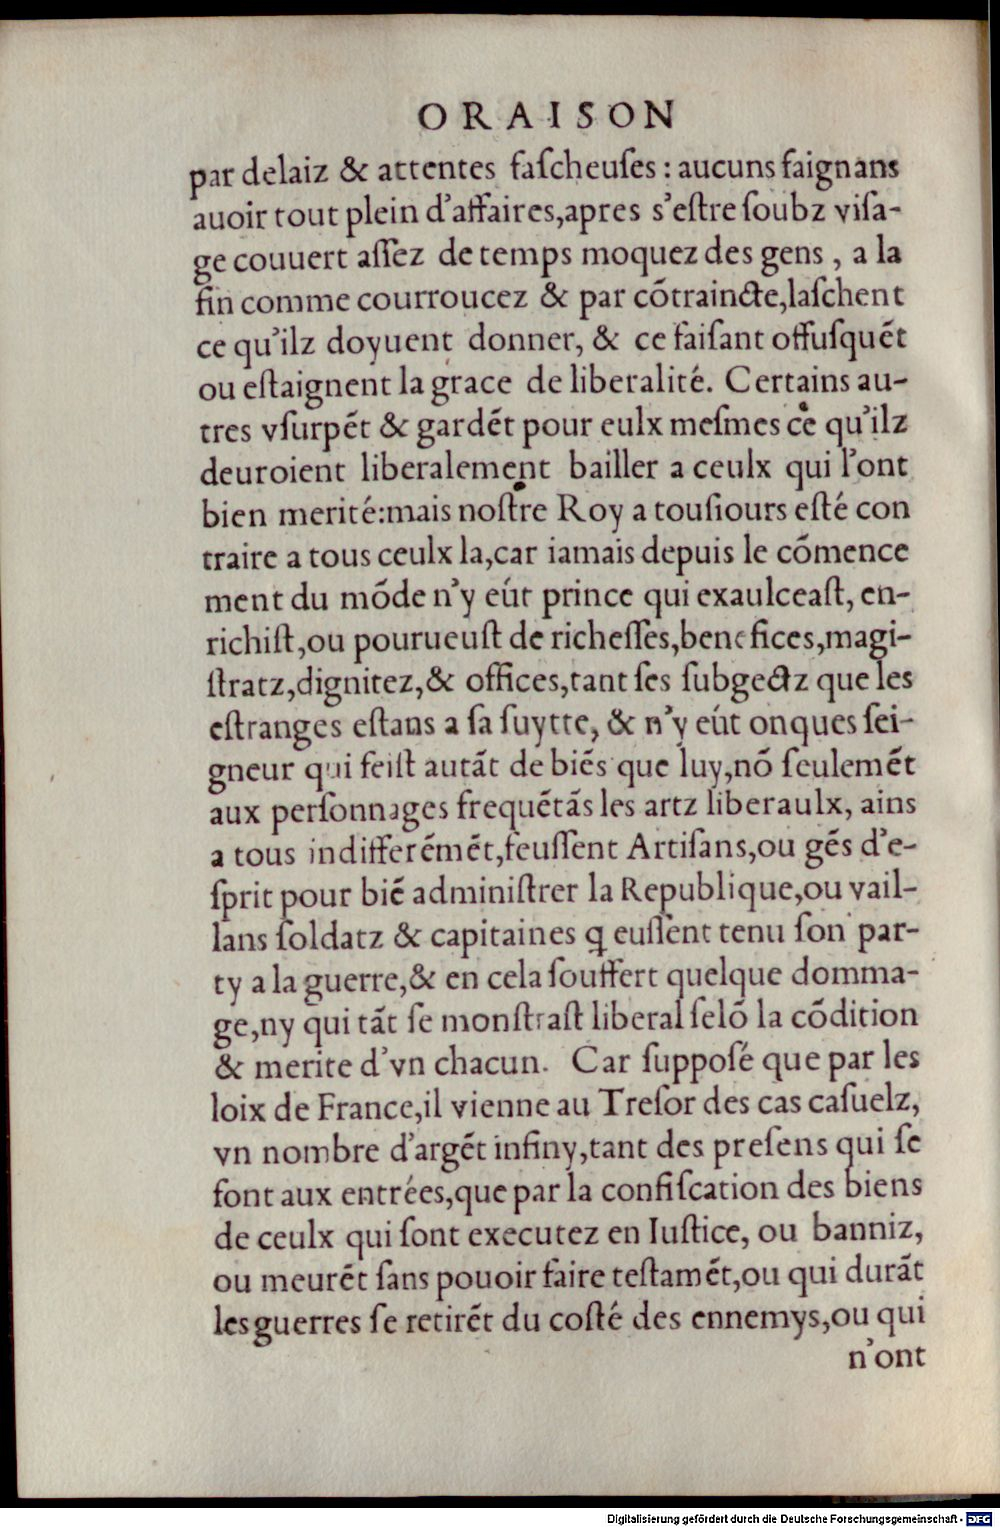 ORAISON
par delaiz & attentes faſcheuſes : aucuns faignans
auoir tout plein d'affaires,apres s'eſtre ſoubz viſa-
ge couuert aſſez de temps moquez des gens , a la
fin comme courroucez & par cõtraincte,laſchent
ce qu'ilz doyuent donner, & ce faiſant offuſquẽt
ou eſtaignent la grace de liberalité. Certains au-
tres vſurpẽt & gardẽt pour eulx meſmes ce qu'ilz
deuroient liberalement bailler a ceulx qui l'ont
bien merité:mais noſtre Roy a touſiours eſté con
traire a tous ceulx la,car iamais depuis le cõmence
ment du mõde n'y eút prince qui exaulceaſt, en-
richiſt,ou pourueuſt de richeſſes,benefices,magi-
ſtratz,dignitez,& offices,tant ſes ſubgectz que les
eſtranges eſtans a ſa ſuytte, & n'y eút onques ſei-
gneur qui feiſt autãt de biẽs que luy,nõ ſeulemẽt
aux perſonnages frequẽtãs les artz liberaulx, ains
a tous indifferẽmẽt,feuſſent Artiſans,ou gẽs d'e-
ſprit pour biẽ adminiſtrer la Republique,ou vail-
lans ſoldatz & capitaines q̃ euſſent tenu ſon par-
ty a la guerre,& en cela ſouffert quelque domma-
ge,ny qui tãt ſe monſtraſt liberal ſelõ la cõdition
& merite d'vn chacun. Car ſuppoſé que par les
loix de France,il vienne au Treſor des cas caſuelz,
vn nombre d'argẽt infiny,tant des preſens qui ſe
font aux entrées,que par la confiſcation des biens
de ceulx qui ſont executez en Iuſtice, ou banniz,
ou meurẽt ſans pouoir faire teſtamẽt,ou qui durãt
les guerres ſe retirẽt du coſté des ennemys,ou qui
n'ont
Digitalisierung gefördert durch die Deutsche Forschungsgemeinschaft - DFG